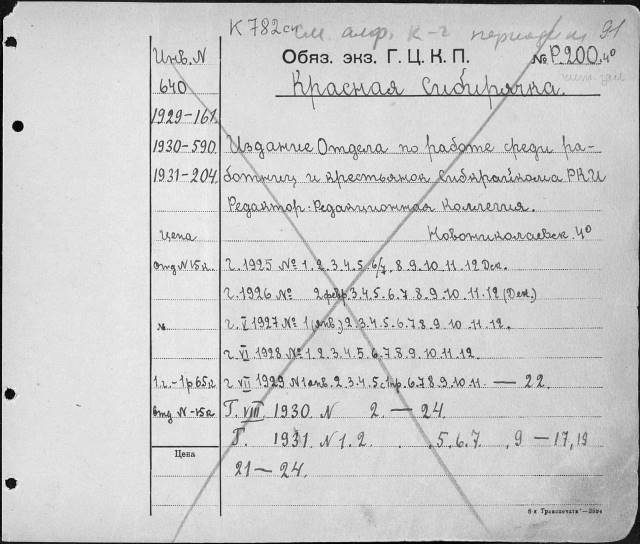 К 782 см алф. к-г период и 91
Обяз. экз. Г. Ц. К. П. № Р.200. 4°
Красная Сибирячка.
Инв. N
640
1929-161.
1930-590.
1931-204.
Издание Отдела по работе среди ра-
ботниц и крестьянок Сибкрайкома РКП
Редактор: Редакционная Коллегия.
Цена Новониколаевск. 4°
отд N 15 к. г. 1925 № 1. 2. 3. 4. 5. 6/7. 8. 9. 10. 11. 12 Дек.
г. 1926 № 2 февр. 3. 4. 5. 6. 7. 8. 9. 10. 11. 12 (Дек.)
г. V 1927 № 1 (янв.) 2. 3. 4. 5. 6. 7. 8. 9. 10. 11. 12.
г. VI 1928 № 1. 2. 3. 4. 5. 6. 7. 8. 9. 10. 11. 12.
1 г. - 1 р 65 к г. VII 1929 N 1 янв. 2. 3. 4. 5. 6. 7. 8. 9. 10. 11. — 22.
отд N - 15 к Г. VIII. 1930. N 2. — 24.
Г. 1931. N 1. 2. , 5. 6. 7. , 9 — 17, 19
Цена
21 — 24.
6-я Транспечать